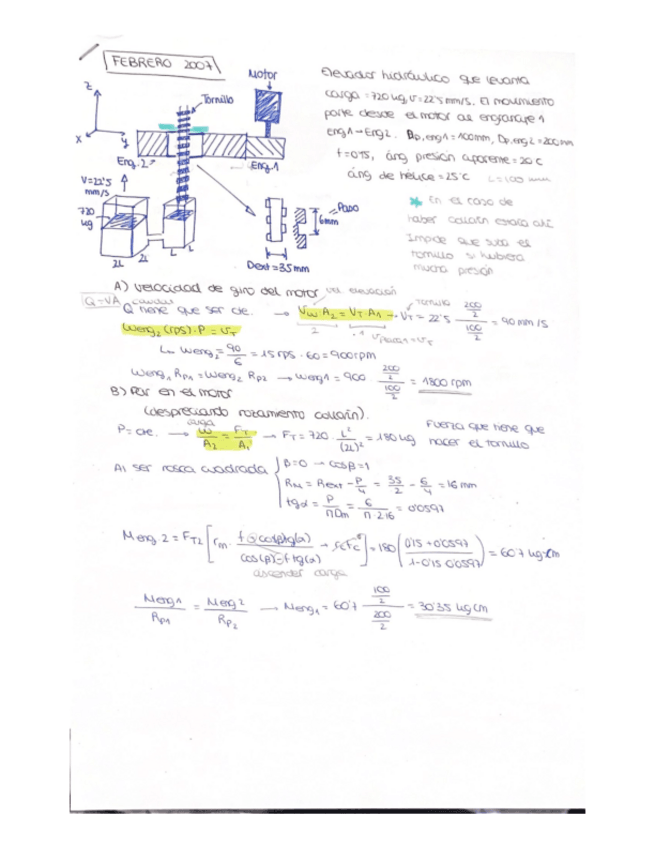 FEBRERO 2007
Motor
Elevador hidráulico que levanta
carga = 720 kg, v = 22'5 mm/s. El movimiento
parte desde el motor al engranaje 1
eng1 → Eng2. Dp,eng1 = 100mm, Dp,eng2 = 200mm
f = 0'15, áng presión aparente = 20°C
áng de hélice = 25°C L = 100 mm
Z
X
Y
Tornillo
Eng.2
Eng.1
V=22'5
mm/s
720
kg
2L
2L
L
L
Paso
6mm
Dext = 35mm
* En el caso de
haber collarín estaría ahí
Impide que suba el
tornillo si hubiera
mucha presión
A) Velocidad de giro del motor vel elevación
Q = VA caudal
Q tiene que ser cte. → Vw·A2 = VT·A1 → VT = 22'5 · (200/2)/(100/2) = 90 mm/s
Tornillo
Weng2 (rps)·P = VT
Weng2 = 90/6 = 15 rps · 60 = 900 rpm
Weng1 Rp1 = Weng2 Rp2 → Weng1 = 900 · (200/2)/(100/2) = 1800 rpm
B) Par en el motor
(despreciando rozamiento collarín).
carga
P = cte. → W/A2 = FT/A1 → FT = 720 · L²/(2L)² = 180 kg
Fuerza que tiene que
hacer el tornillo
Al ser rosca cuadrada
β=0 → cosβ=1
RM = Rext − P/4 = 35/2 − 6/4 = 16 mm
tgα = P/ΠDm = 6/Π·2·16 = 0'0597
Meng 2 = FT2 [rm · (f + cos(β)tg(α))/(cos(β) − f tg(α)) + rcfc] = 180 (0'15 + 0'0597/1 − 0'15 0'0597) = 60'7 kg·cm
ascender carga
Meng1/Rp1 = Meng2/Rp2 → Meng1 = 60'7 (100/2)/(200/2) = 30'35 kg cm